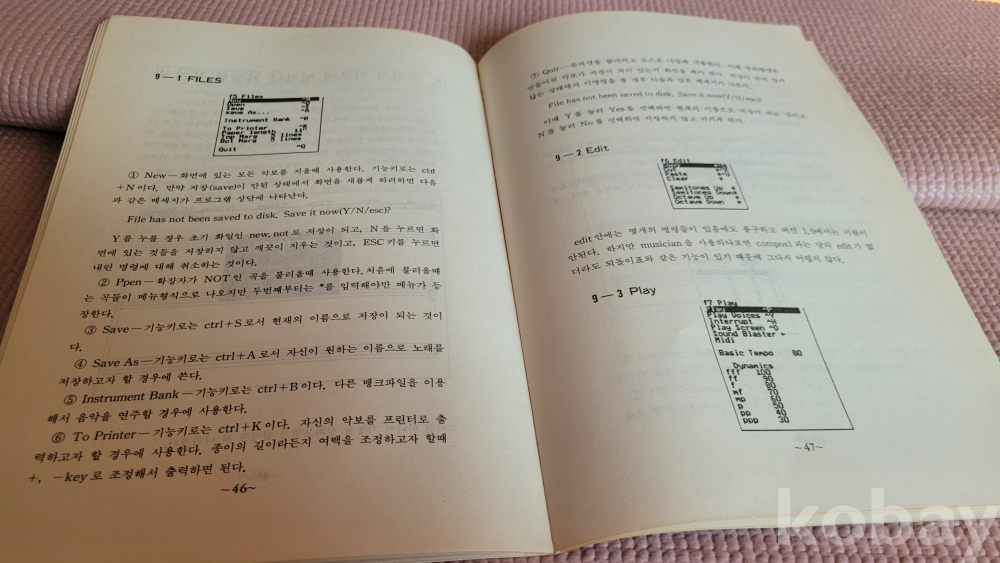 9－1 FILES
f5 Files
New ^N
Open ^O
Save ^S
save As... ^A
Instrument Bank ^B
To Printer ^K
Paper length 11"
Top Marg 3 lines
Bot Marg 3 lines
Quit ^Q
① New－화면에 있는 모든 악보를 지울때 사용한다. 기능키로는 ctrl
+N이다. 만약 저장(save)이 안된 상태에서 화면을 새롭게 하려하면 다음
과 같은 메세지가 프로그램 상단에 나타난다.
File has not been saved to disk. Save it now(Y/N/esc)?
Y를 누를 경우 초기 화일인 new, not로 저장이 되고, N을 누르면 화
면에 있는 것들을 저장하지 않고 깨끗이 지우는 것이고, ESC키를 누르면
내린 명령에 대해 취소하는 것이다.
② Ppen－확장자가 NOT인 곡을 불러올때 사용한다. 처음에 불러올때
는 곡들이 메뉴형식으로 나오지만 두번째부터는 *를 입력해야만 메뉴가 등
장한다.
③ Save－기능키로는 ctrl+S로서 현재의 이름으로 저장이 되는 것이
다.
④ Save As－기능키로는 ctrl+A로서 자신이 원하는 이름으로 노래를
저장하고자 할 경우에 쓴다.
⑤ Instrument Bank－기능키로는 ctrl+B이다. 다른 뱅크파일을 이용
해서 음악을 연주할 경우에 사용한다.
⑥ To Printer－기능키로는 ctrl+K이다. 자신의 악보를 프린터로 출
력하고자 할 경우에 사용한다. 종이의 길이라든지 여백을 조정하고자 할때
+, －key로 조정해서 출력하면 된다.
~46~
⑦ Quit－
File has not been saved to disk. Save it now(Y/N/esc)?
이때 Y를 눌러 Yes를 선택하면 현재의 이름으로 저장이 되는 것이고
N를 눌러 No를 선택하면 저장하지 않고 마치게 된다.
9－2 Edit
f6 Edit
Cut
Paste
Clear
Semitones Up
Semitones Down
Octave Up
Octave Down
edit 안에는 몇개의 명령들이 있음에도 불구하고 버전 1.0에서는 지원이
안된다. 하지만 musician을 사용하다보면 compos1과는 달리 edit가 없
더라도 되돌이표와 같은 기능이 있기 때문에 그다지 어렵지 않다.
9－3 Play
f7 Play
Play Voices ^Y
Interrupt ^H
Play Screen ^D
Sound Blaster
Midi
Basic Tempo 80
Dynamics
fff 100
ff 90
f 80
mf 70
mp 60
p 50
pp 40
ppp 30
~47~
kobay